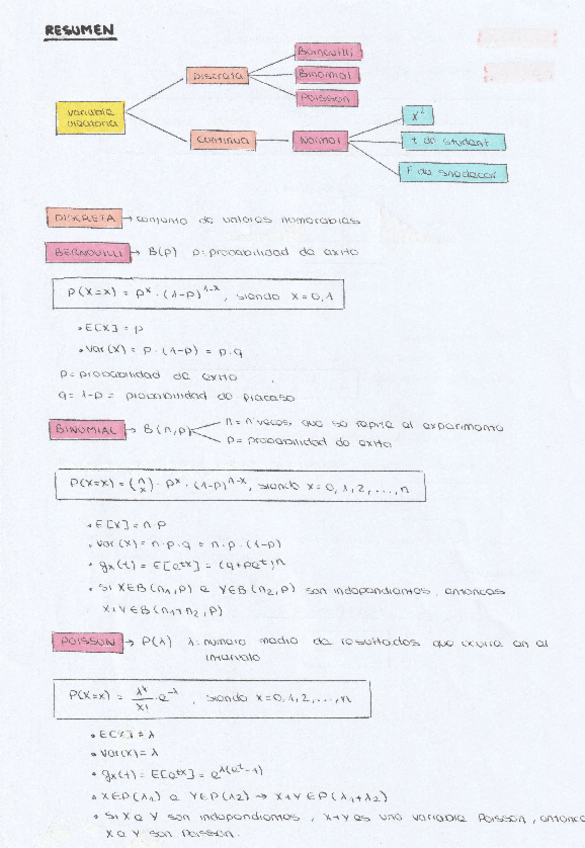 RESUMEN
Bernouilli
Discreta
Binomial
Poisson
variable
aleatoria
Continua
Normal
x²
t de student
F de Snedecor
DISCRETA → conjunto de valores numerables
BERNOUILLI → B(p) p: probabilidad de exito
P(X=x) = pˣ · (1-p)¹⁻ˣ, siendo x=0,1
• E[X] = p
• Var(x) = p · (1-p) = p · q
p = probabilidad de exito
q = 1-p = probabilidad de fracaso
BINOMIAL → B(n,p)
n = nº veces que se repite el experimento
p = probabilidad de exito
P(X=x) = (n x) · pˣ · (1-p)ⁿ⁻ˣ, siendo x=0,1,2,...,n
• E[X] = n·p
• Var(x) = n·p·q = n·p·(1-p)
• gx(t) = E[eᵗˣ] = (q+peᵗ)n
• Si X∈B(n₁,p) e Y∈B(n₂,p) son independientes, entonces
X+Y∈B(n₁+n₂,p)
POISSON → P(λ) λ: número medio de resultados que ocurre en el
intervalo
P(X=x) = λˣ/x! · e^-λ, siendo x=0,1,2,...,n
• E[X] = λ
• Var(x) = λ
• gx(t) = E[eᵗˣ] = e^λ(eᵗ-1)
• X∈P(λ₁) e Y∈P(λ₂) → X+Y∈P(λ₁+λ₂)
• Si X e Y son independientes, X+Y es una variable Poisson, entonces
X e Y son Poisson.